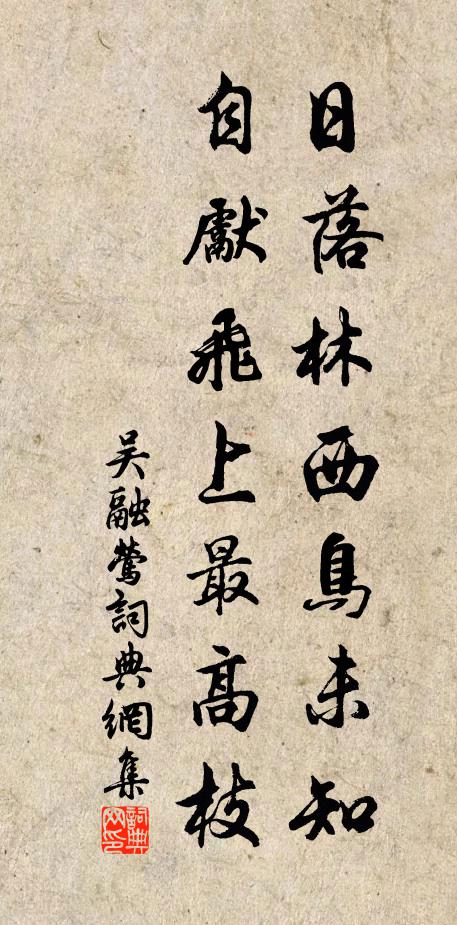 日落林西鳥未知
自獻飛上最高枝
吳融鶯詞典網集
詞典網印